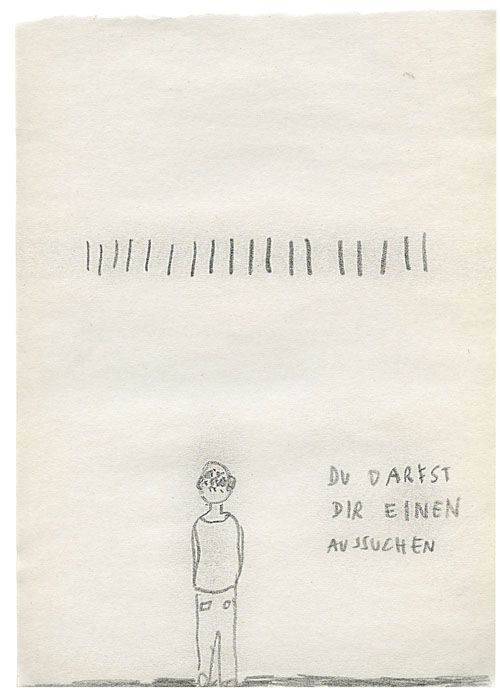 DU DARFST
DIR EINEN
AUSSUCHEN